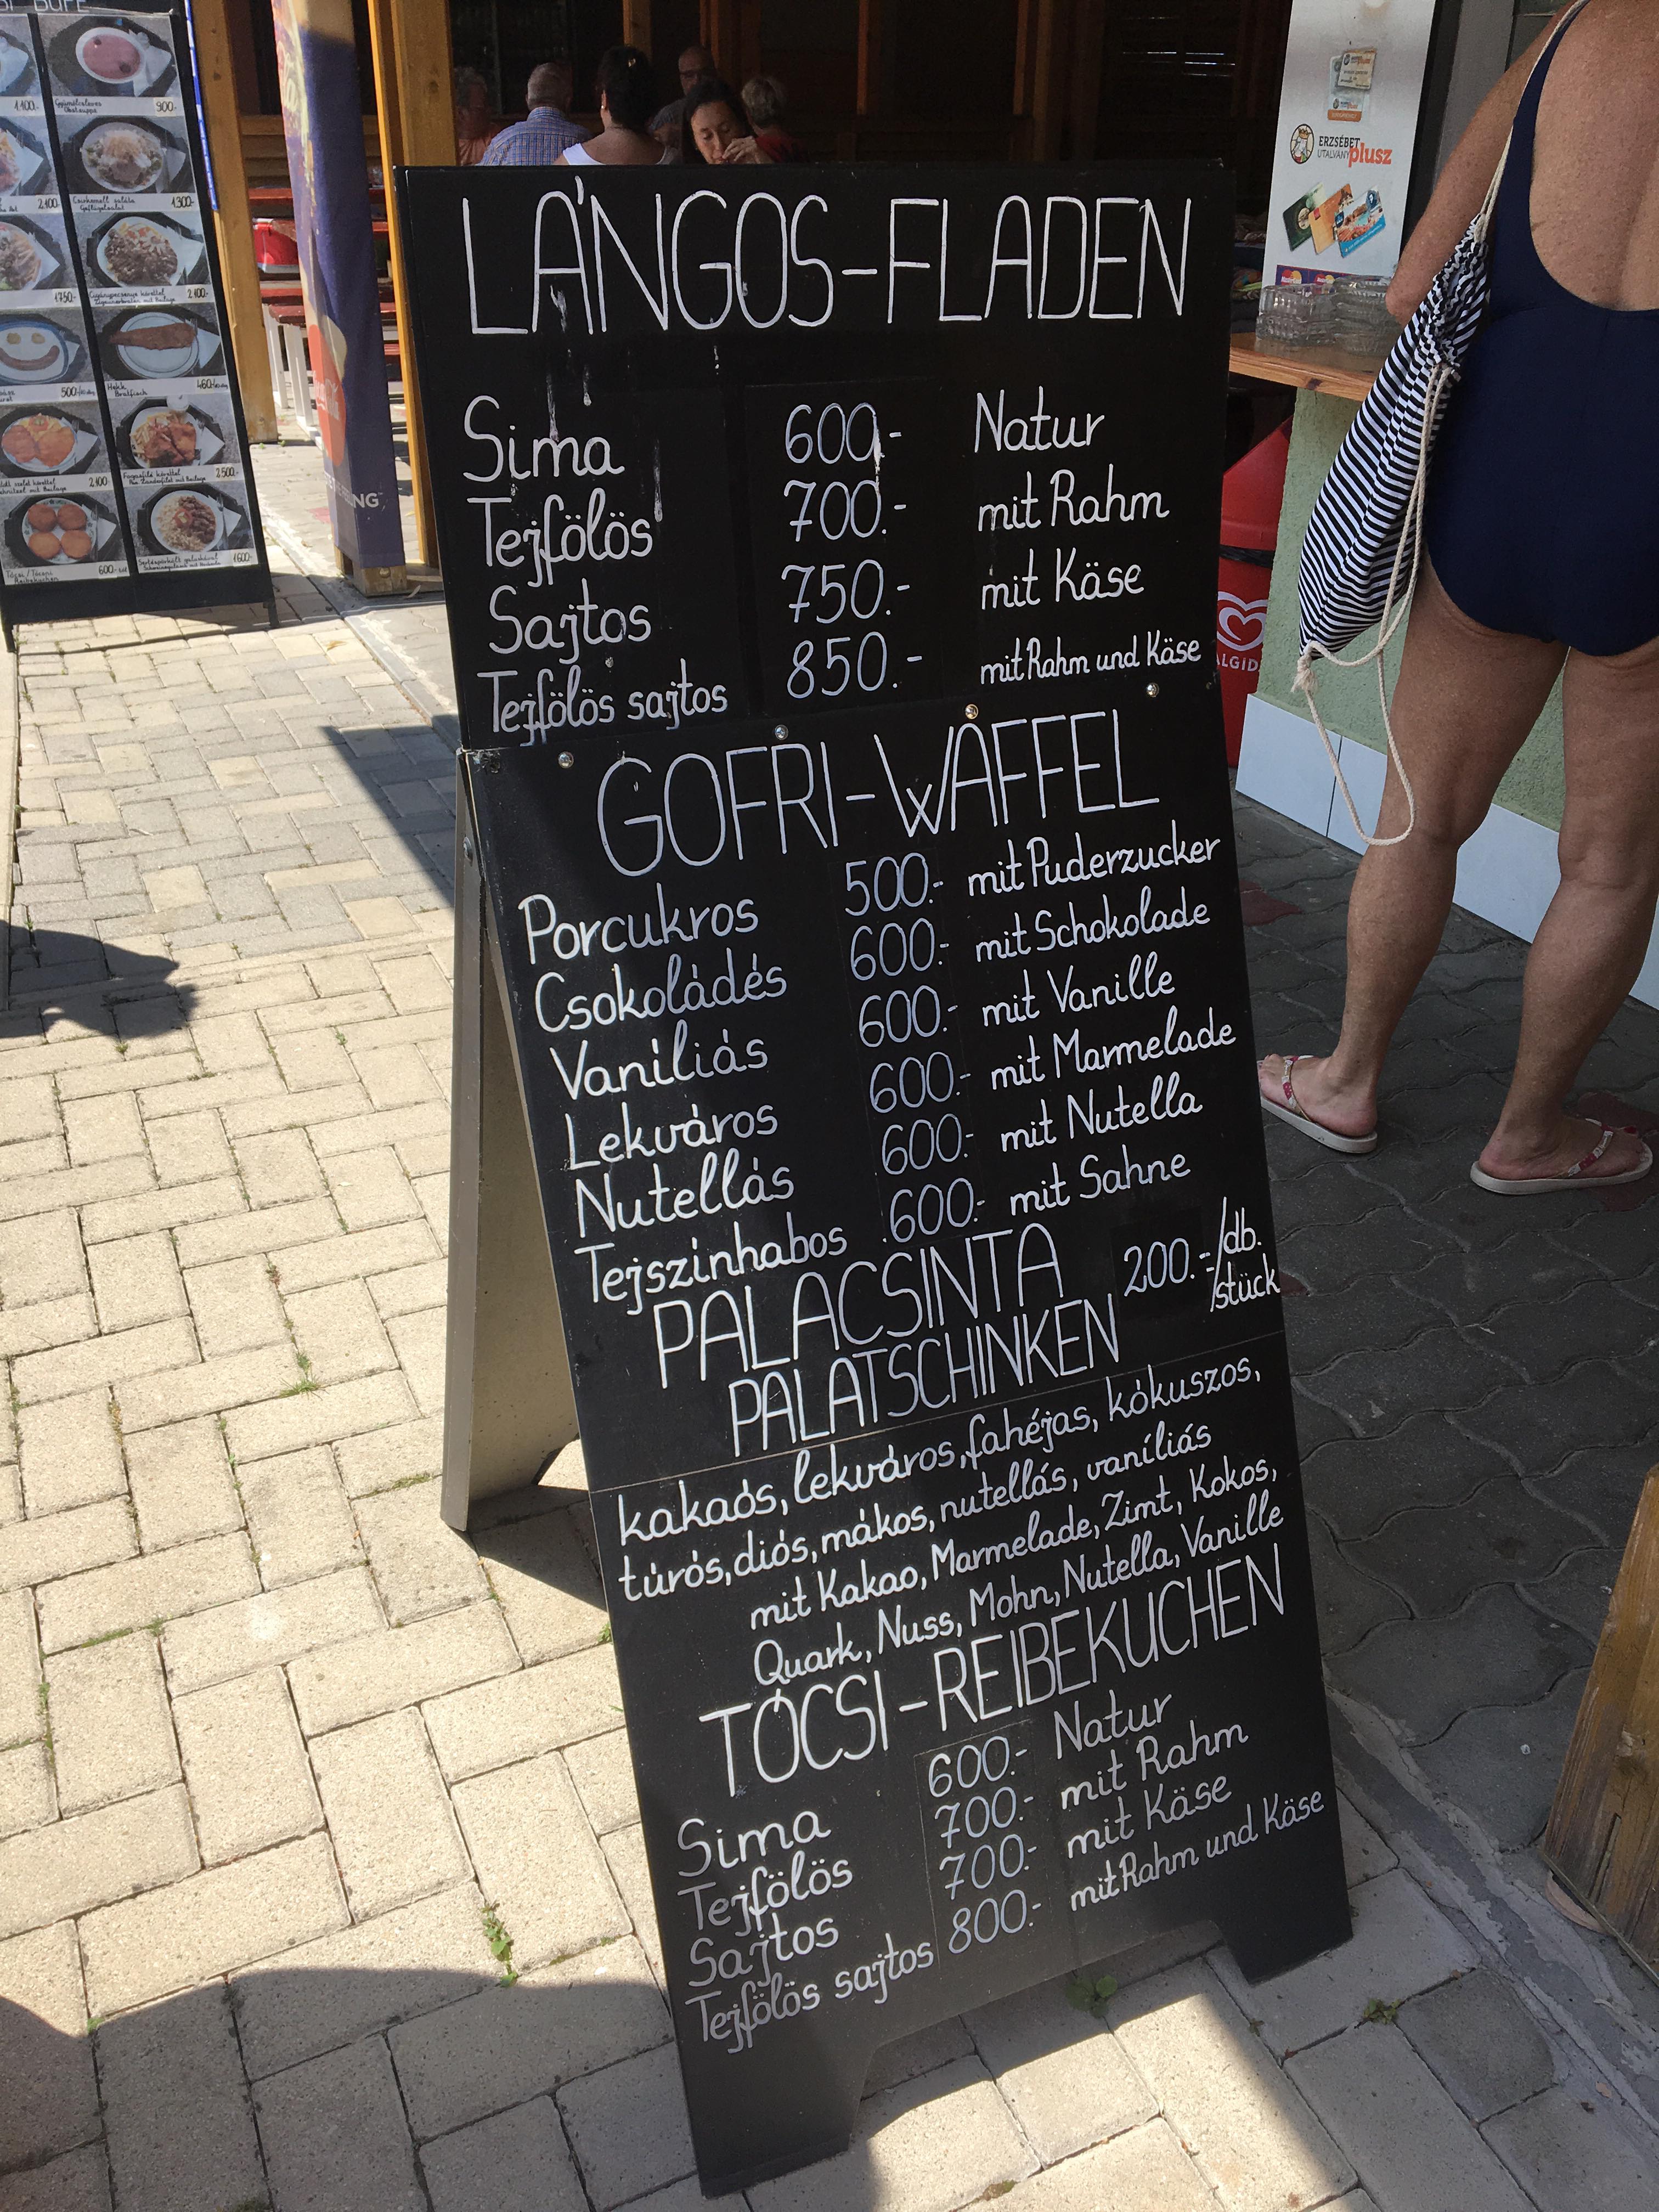 LÁNGOS-FLADEN
Sima 600.- Natur
Tejfölös 700.- mit Rahm
Sajtos 750.- mit Käse
Tejfölös sajtos 850.- mit Rahm und Käse
GOFRI-WAFFEL
Porcukros 500.- mit Puderzucker
Csokoládés 600.- mit Schokolade
Vaníliás 600.- mit Vanille
Lekváros 600.- mit Marmelade
Nutellás 600.- mit Nutella
Tejszínhabos 600.- mit Sahne
PALACSINTA 200.-/db.
PALATSCHINKEN /stück
kakaós, lekváros, fahéjas, kókuszos,
túrós, diós, mákos, nutellás, vaníliás
mit Kakao, Marmelade, Zimt, Kokos,
Quark, Nuss, Mohn, Nutella, Vanille
TÓCSI-REIBEKUCHEN
Sima 600.- Natur
Tejfölös 700.- mit Rahm
Sajtos 700.- mit Käse
Tejfölös sajtos 800.- mit Rahm und Käse
ERZSÉBET
UTALVÁNY plusz
ALGID
1.100.-
900.-
2.100.-
1.300.-
1750.-
2.100.-
500.-
Hekk 460.-
Bratfisch
2.100.-
2.500.-
600.-
1.600.-